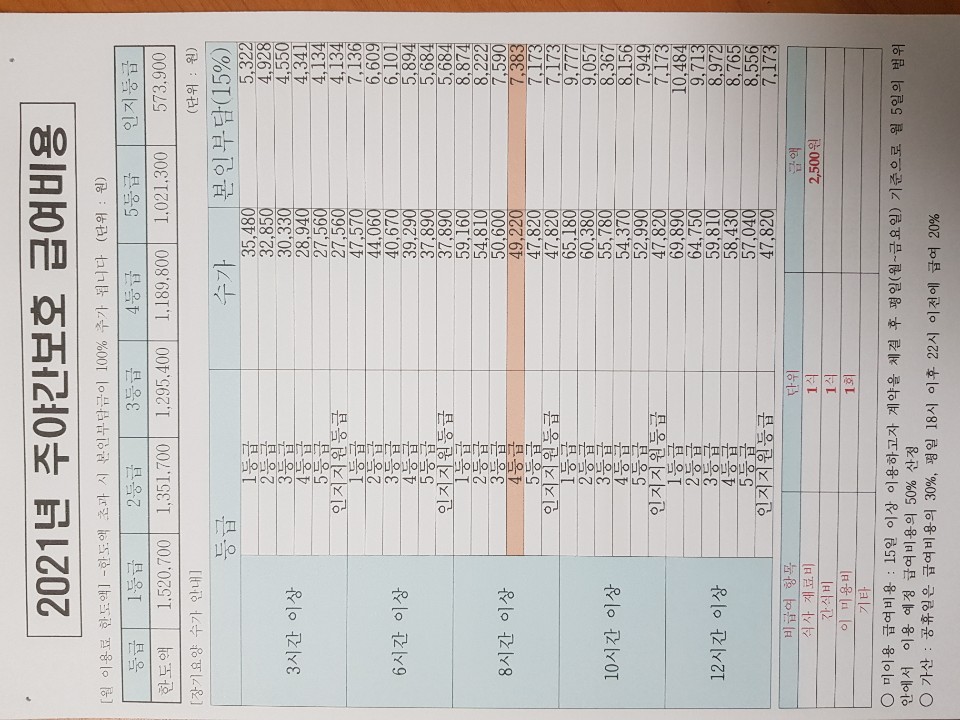 2021년 주야간보호 급여비용
[월 이용료 한도액] -한도액 초과 시 본인부담금이 100% 추가 됩니다 (단위 : 원)
등급 1등급 2등급 3등급 4등급 5등급 인지등급
한도액 1,520,700 1,351,700 1,295,400 1,189,800 1,021,300 573,900
[장기요양 수가 안내] (단위 : 원)
등급 수가 본인부담(15%)
3시간 이상
1등급 35,480 5,322
2등급 32,850 4,928
3등급 30,330 4,550
4등급 28,940 4,341
5등급 27,560 4,134
인지지원등급 27,560 4,134
6시간 이상
1등급 47,570 7,136
2등급 44,060 6,609
3등급 40,670 6,101
4등급 39,290 5,894
5등급 37,890 5,684
인지지원등급 37,890 5,684
8시간 이상
1등급 59,160 8,874
2등급 54,810 8,222
3등급 50,600 7,590
4등급 49,220 7,383
5등급 47,820 7,173
인지지원등급 47,820 7,173
10시간 이상
1등급 65,180 9,777
2등급 60,380 9,057
3등급 55,780 8,367
4등급 54,370 8,156
5등급 52,990 7,949
인지지원등급 47,820 7,173
12시간 이상
1등급 69,890 10,484
2등급 64,750 9,713
3등급 59,810 8,972
4등급 58,430 8,765
5등급 57,040 8,556
인지지원등급 47,820 7,173
비급여 항목 단위 금액
식사 재료비 1식 2,500원
간식비 1식
이 미용비 1회
기타
○ 미이용 급여비용 : 15일 이상 이용하고자 계약을 체결 후 평일(월~금요일) 기준으로 월 5일의 범위
안에서 이용 예정 급여비용의 50% 산정
○ 가산 : 공휴일은 급여비용의 30%, 평일 18시 이후 22시 이전에 급여 20%